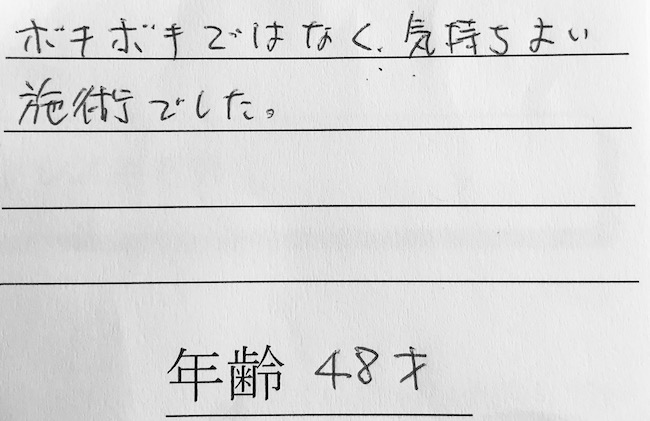 ボキボキではなく、気持ちよい
施術でした。
年齢 48才